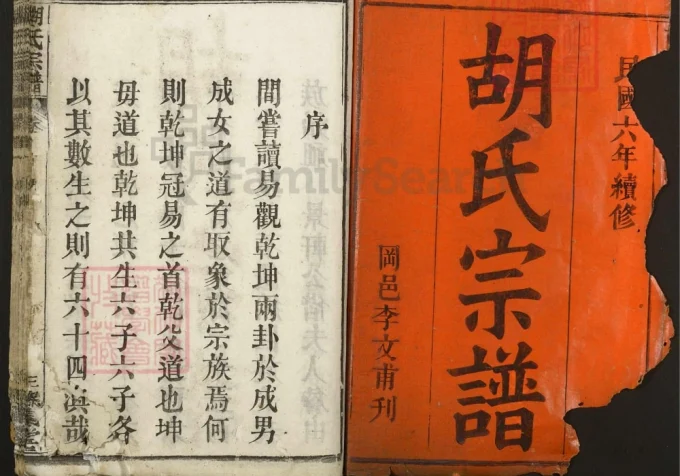 民國六年續修
胡氏宗譜
岡邑李文甫刊
序
間嘗讀易觀乾坤兩卦於成男
成女之道有取象於宗族焉何
則乾坤冠易之首乾父道也坤
毋道也乾坤共生六子六子各
以其數生之則有六十四
哉
胡氏宗譜
卷
三
FamilySearch